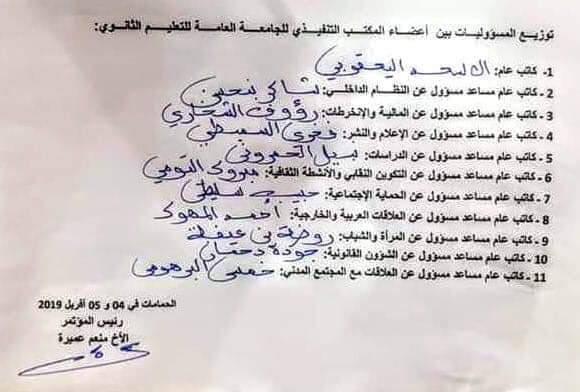 توزيع المسؤوليات بين أعضاء المكتب التنفيذي للجامعة العامة للتعليم الثانوي:
1- كاتب عام: الأسعد اليعقوبي
2 - كاتب عام مساعد مسؤول عن النظام الداخلي:
3 - كاتب عام مساعد مسؤول عن المالية والإنخرطات: رؤوف الشخاري
4 - كاتب عام مساعد مسؤول عن الإعلام والنشر: فخري السميطي
5 - كاتب عام مساعد مسؤول عن الدراسات: نبيل الحمروني
6 - كاتب عام مساعد مسؤول عن التكوين النقابي والأنشطة الثقافية: مبروك التومي
7 - كاتب عام مساعد مسؤول عن الحماية الإجتماعية: حبيب
8 - كاتب عام مساعد مسؤول عن العلاقات العربية والخارجية: أحمد المهوك
9 - كاتب عام مساعد مسؤول عن المرأة والشباب: روضة بن عيفة
10 - كاتب عام مساعد مسؤول عن الشؤون القانونية: جودة دحمان
11 - كاتب عام مساعد مسؤول عن العلاقات مع المجتمع المدني: خميس البرهومي
الحمامات في 04 و 05 أفريل 2019
رئيس المؤتمر
الأخ منعم عميرة